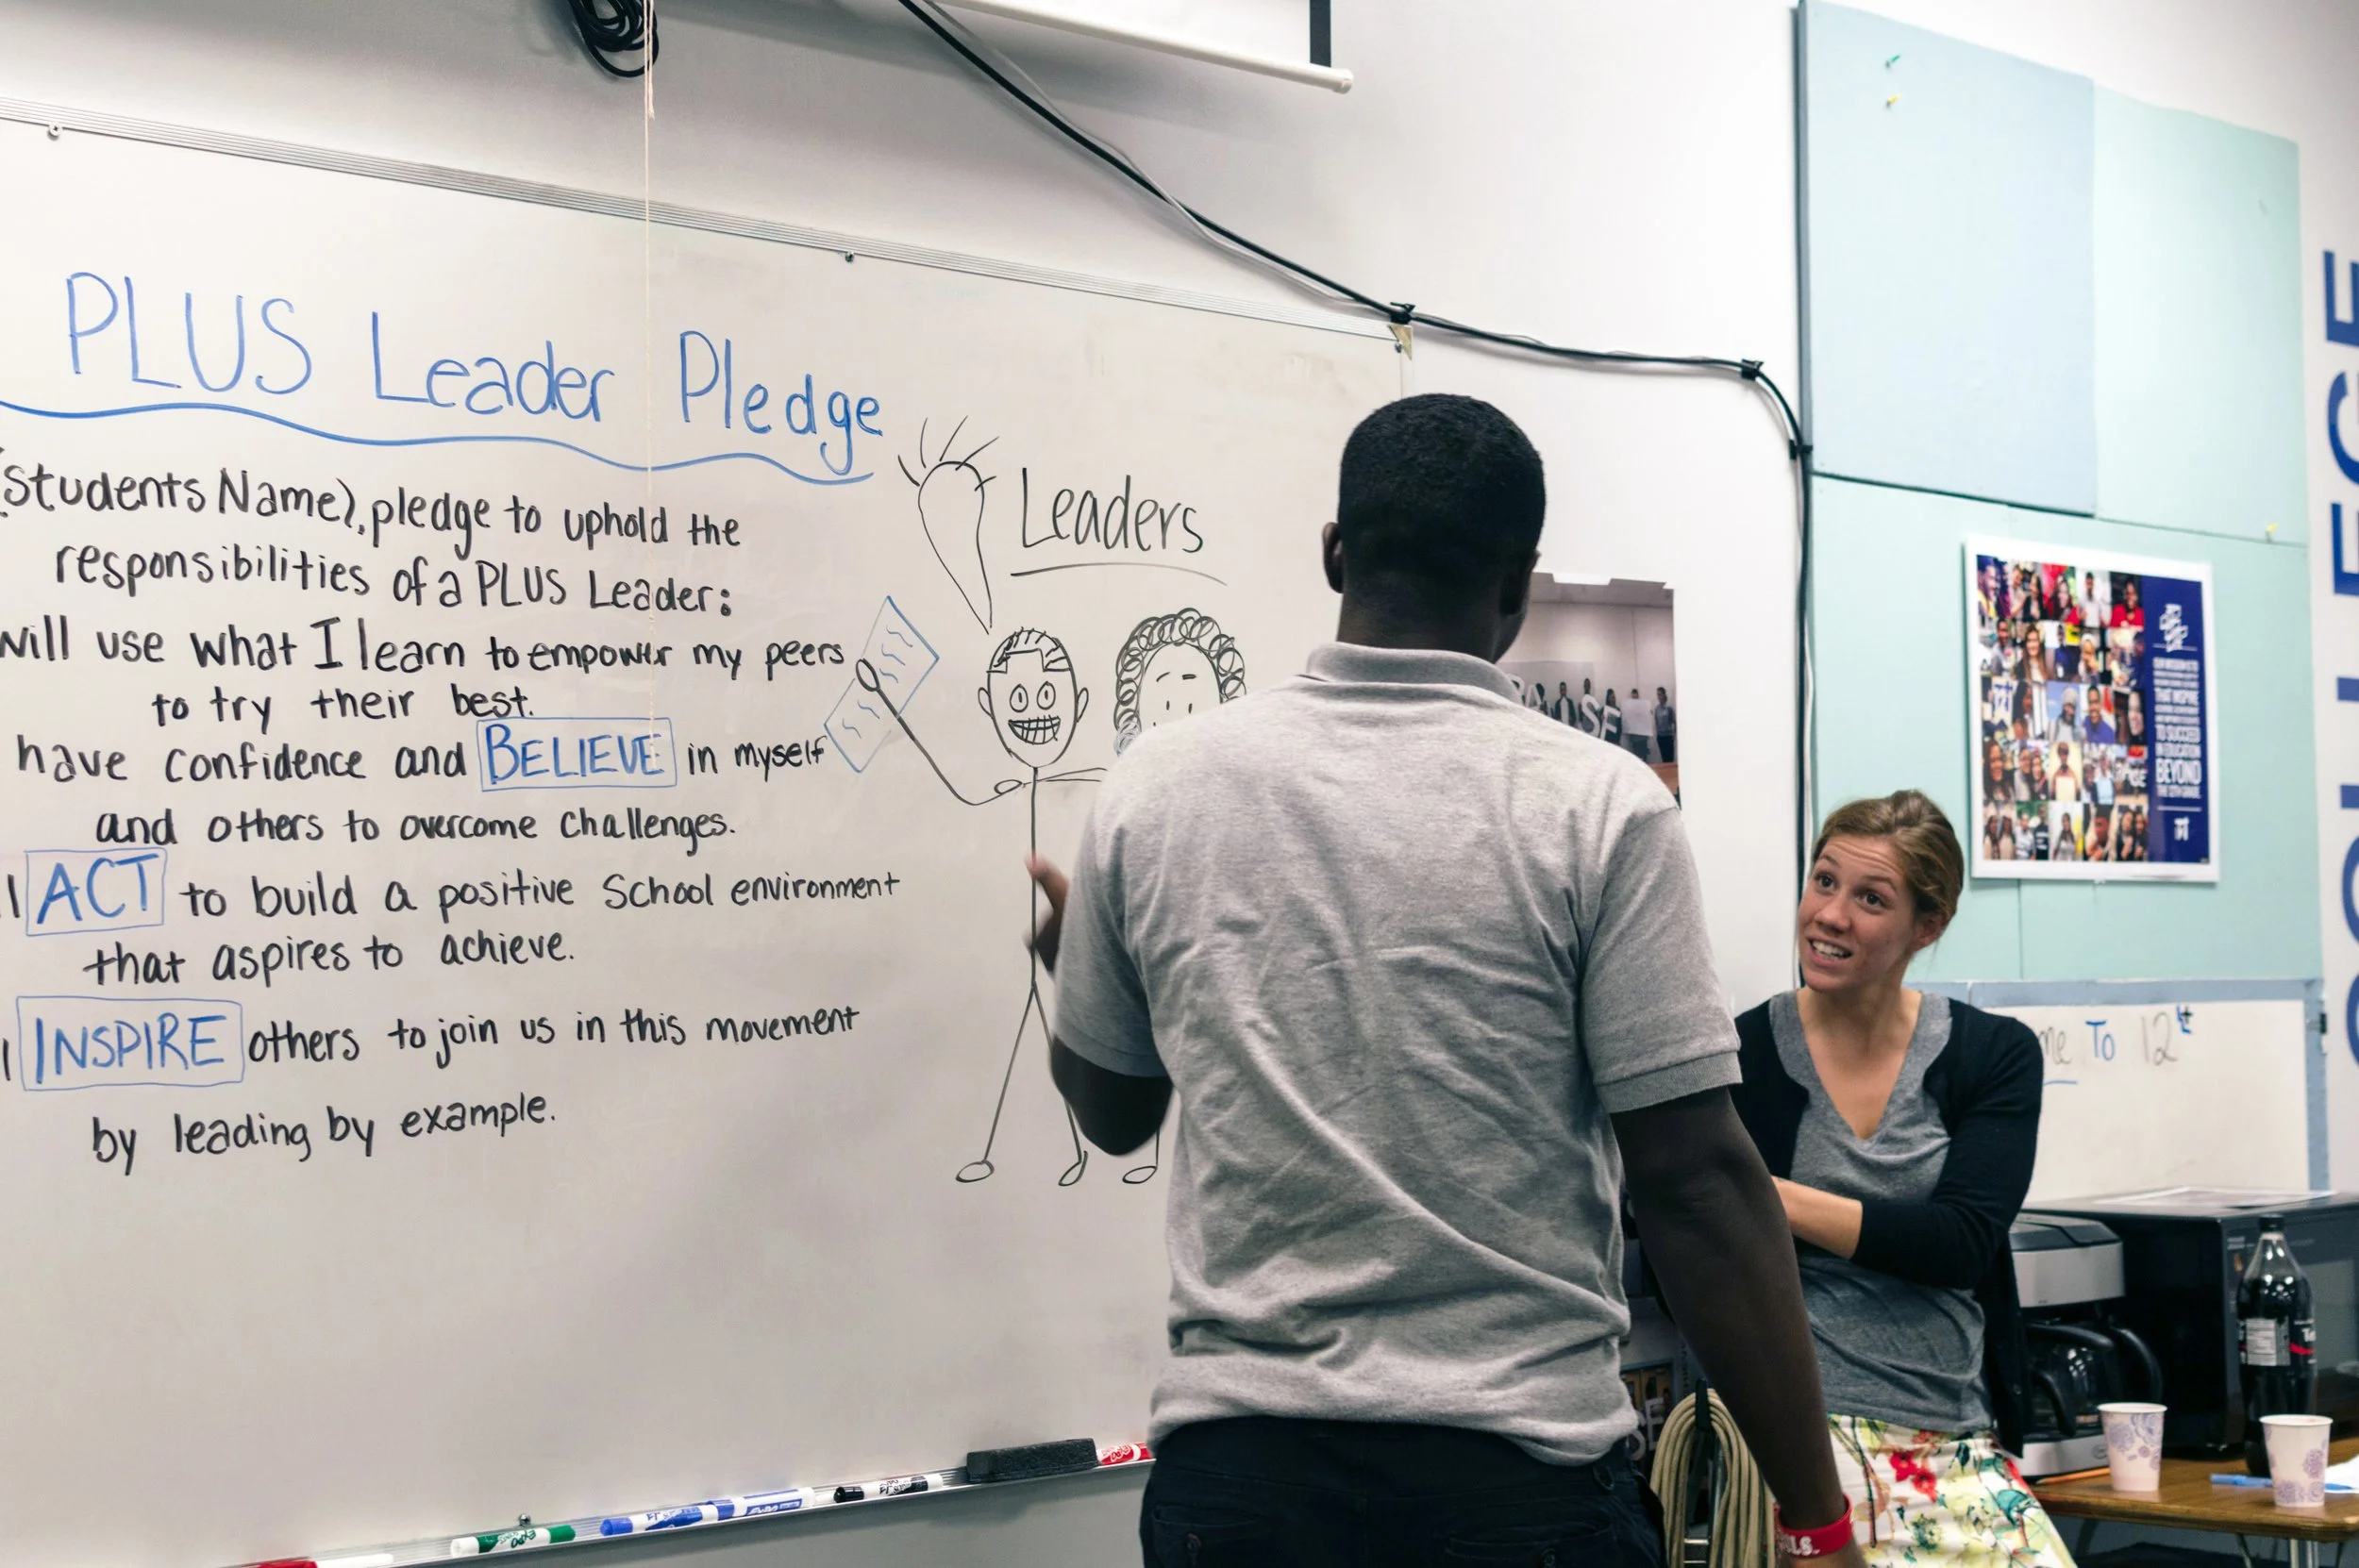 PLUS Leader Pledge
(students Name), pledge to uphold the
responsibilities of a PLUS Leader:
will use what I learn to empower my peers
to try their best.
have confidence and BELIEVE in myself
and others to overcome challenges.
ACT to build a positive School environment
that aspires to achieve.
INSPIRE others to join us in this movement
by leading by example.
Leaders
THAT INSPIRE
TO SUCCEED
IN EDUCATION
BEYOND
THE 12TH GRADE
To 12th
EXPO